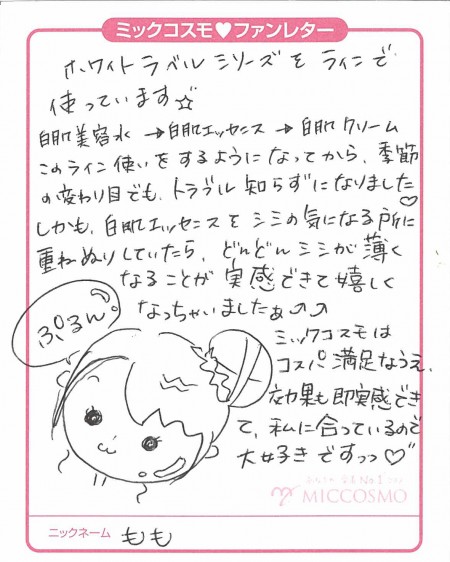 ミックコスモ♥ファンレター
ホワイトラベルシリーズをラインで
使っています☆
白肌美容水→白肌エッセンス→白肌クリーム
このライン使いをするようになってから、季節
の変わり目でも、トラブル知らずになりました♡
しかも、白肌エッセンスをシミの気になる所に
重ねぬりしていたら、どんどんシミが薄く
なることが実感できて嬉しく
なっちゃいましたぁ
ぷるん。
ミックコスモは
コスパ満足なうえ、
効果も即実感でき
て、私に合っているので
大好きですっっ♡
MICCOSMO
ニックネーム もも